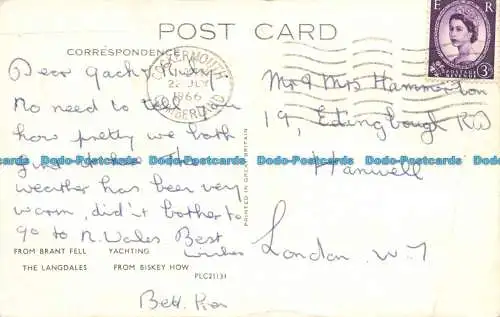 POST CARD
CORRESPONDENCE
COCKERMOUTH
22 JLY
1966
CUMBERLAND
E R
POSTAGE
3D
Dear
No need to tell you
how pretty we both
weather has been very
warm, did't bother to
go to N. Wales Best
wishes
Mr & Mrs Hammerton
19, Edingbough Rd
Hanwell
London W.7
Dodo-Postcards Dodo-Postcards Dodo-Postcards Dodo-Postcards
PRINTED IN GREAT BRITAIN
FROM BRANT FELL YACHTING
THE LANGDALES FROM BISKEY HOW
PLC21131